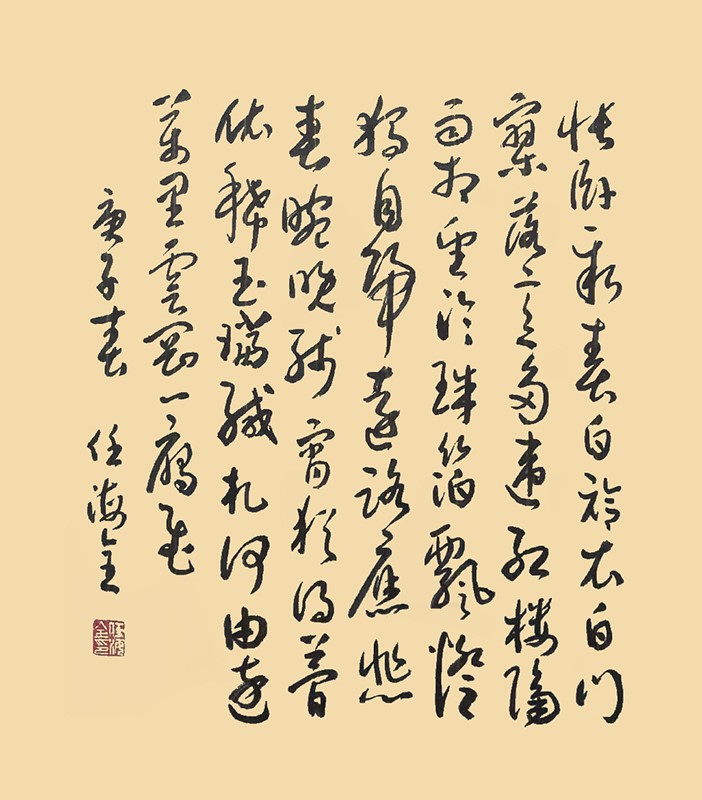 悵卧新春白袷衣白门
寥落意多违红楼隔
雨相望冷珠箔飘燈
獨自歸遠路應悲
春晼晚残宵犹得夢
依稀玉璫缄札何由達
萬里雲罗一雁飛
庚子春 任海全